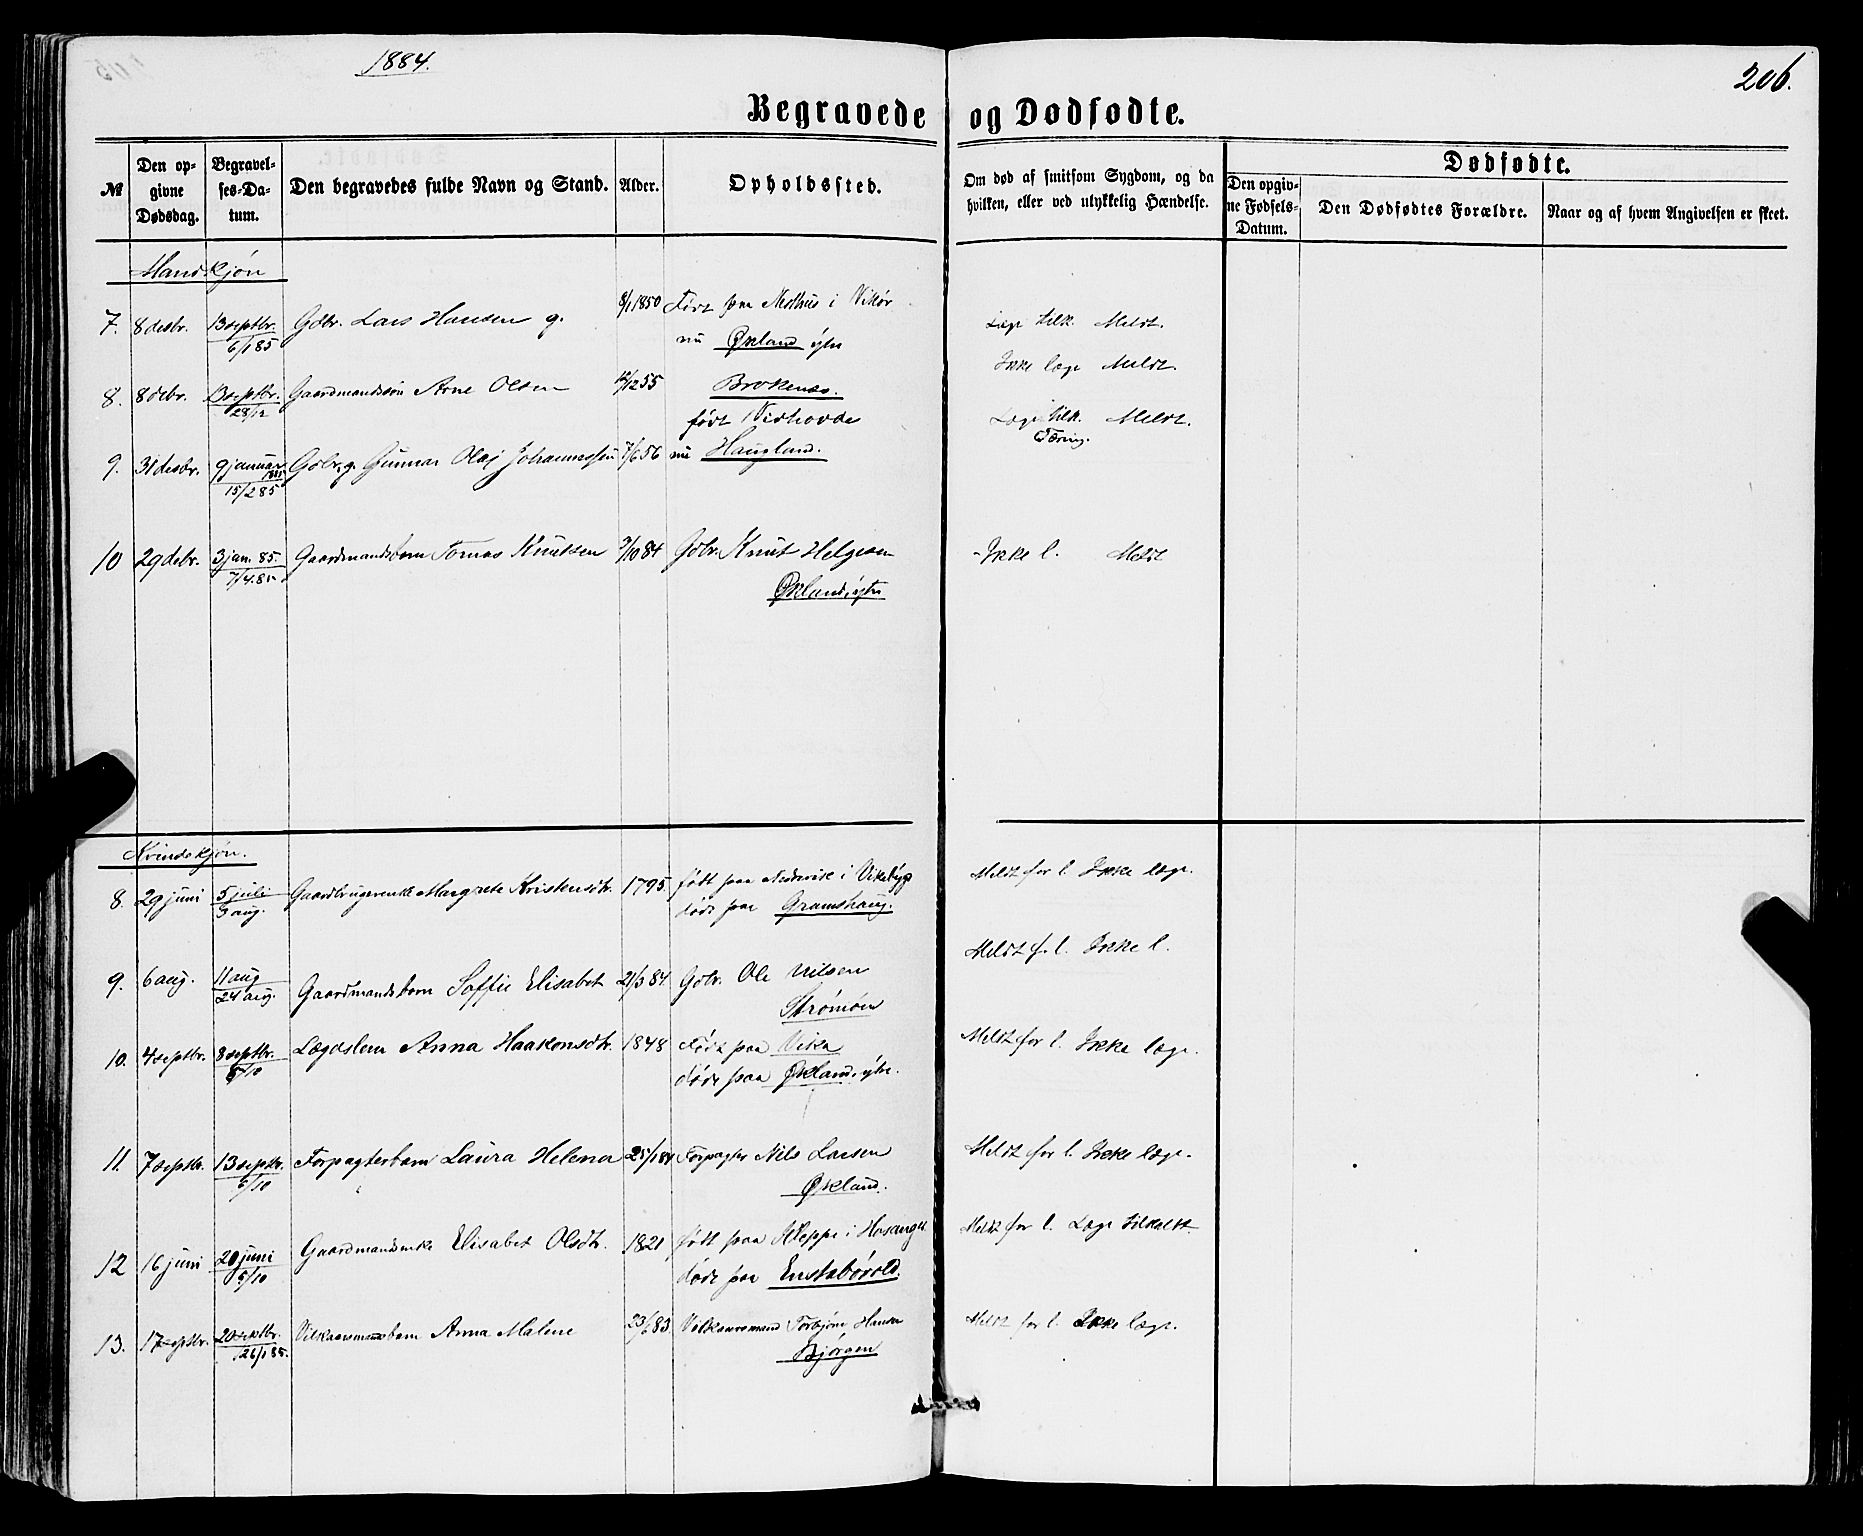 1884.
206.
Begravede og Dødfødte.
№
Den opgivne Dødsdag.
Begravelses-Datum.
Den begravedes fulde Navn og Stand.
Alder.
Opholdssted.
Om død af smitsom Sygdom, og da hvilken, eller ved ulykkelig Hændelse.
Dødfødte.
Den opgivne Fødsels-Datum.
Den Dødfødtes Forældre.
Naar og af hvem Angivelsen er skeet.
Mandkjøn
7. 8 desbr. 13 septbr. 6/1 85 Gdbr. Lars Hansen g. 8/1 1850 Født paa Nesthus i Vikør
nu Økland ytre
Læge tilk. Meldt.
8. 8 debr. 13 septbr. 28/12 Gaardmandssøn Arne Olsen 12/12 55 Brokenes.
Ikke læge Meldt.
født Vedhovde
9. 31 desbr. 9 januar 1885 15/2 85 Gdbr. g. Gunnar Olaj Johannessen 7/6 56 nu Haugland.
Læge tilk. Meldt.
Tæring.
10 29 debr. 3 jan. 85. 7/4.85 Gaardmandsbarn Tomas Knutsen 9/10 84 Gdbr. Knut Helgesen
Økland, ytre
Ikke l. Meldt
Kvindekjøn.
8. 29 juni 5 juli 3 aug. Gaardbrugerenke Margrete Kristensdtr. 1795. født paa Nedrevik i Vikebygd
døde paa Gramshaug.
Meldt for l. Ikke læge.
9. 6 aug. 11 aug 24 aug. Gaardmandsbarn Soffie Elisabet 21/3 84. Gdbr. Ole Nilsen
Strømøen
Meldt for l. Ikke l.
10. 4 septbr. 8 septbr. 5/10 Lægdslem Anna Haakonsdtr. 1848 Født paa Vika
døde paa Økland, ytre.
Meldt for l. Ikke læge.
11. 7 septbr. 13 septbr. 5/10 Forpagterbarn Laura Helena 25/1 84 Forpagter Nils Larsen
Økland.
Meldt for l. Ikke læge.
12 16 juni 20 juni 5/10 Gaardmandsenke Elisabet Olsdtr. 1821 født paa Kleppe i Hosanger
døde paa Enstabøvold.
Meldt for l. Læge tilkaldt.
13. 17 septbr. 20 septbr. 26/1 85. Vilkaarsmandsbarn Anna Malene 23/6 83. Vilkaarsmand Torbjørn Hansen
Bjørgen
Meldt for l. Ikke læge.